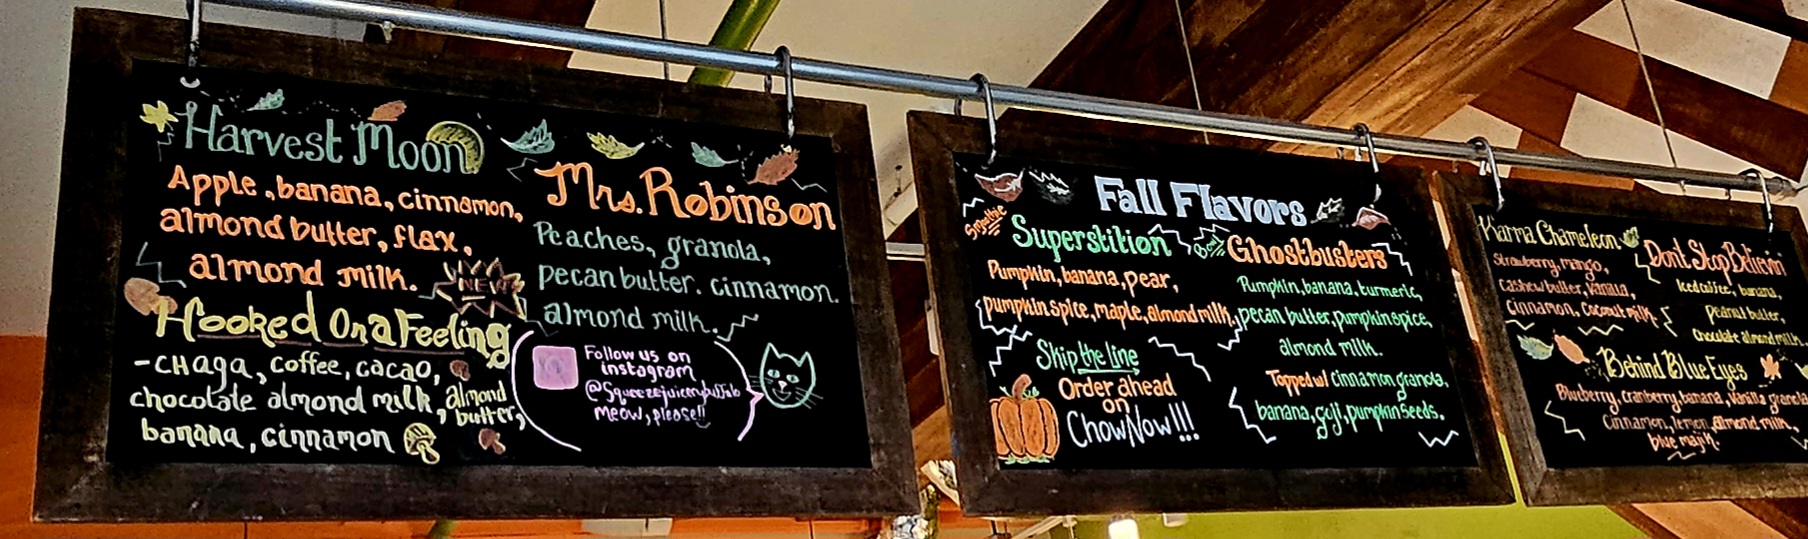 Harvest Moon
Apple, banana, cinnamon,
almond butter, flax,
almond milk.
NEW
Hooked On a Feeling
-CHAga, coffee, cacao,
chocolate almond milk, almond butter,
banana, cinnamon
Mrs. Robinson
Peaches, granola,
pecan butter. cinnamon.
almond milk.
Follow us on
instagram
@Squeezejuicerybuffalo
Meow, please!!
Fall Flavors
Smoothie
Superstition
Pumpkin, banana, pear,
pumpkin spice, maple, almond milk.
Skip the line
Order ahead
on
ChowNow!!!
Bowl
Ghostbusters
Pumpkin, banana, turmeric,
pecan butter, pumpkin spice,
almond milk.
Topped w/ cinnamon granola,
banana, goji, pumpkin seeds.
Karma Chameleon
Strawberry, mango,
cashew butter, vanilla,
cinnamon, coconut milk
Dont Stop Believin'
Iced coffee, banana,
Peanut butter,
chocolate almond milk.
Behind Blue Eyes
Blueberry, cranberry, banana, vanilla granola
Cinnamon, lemon, almond milk,
blue majik.